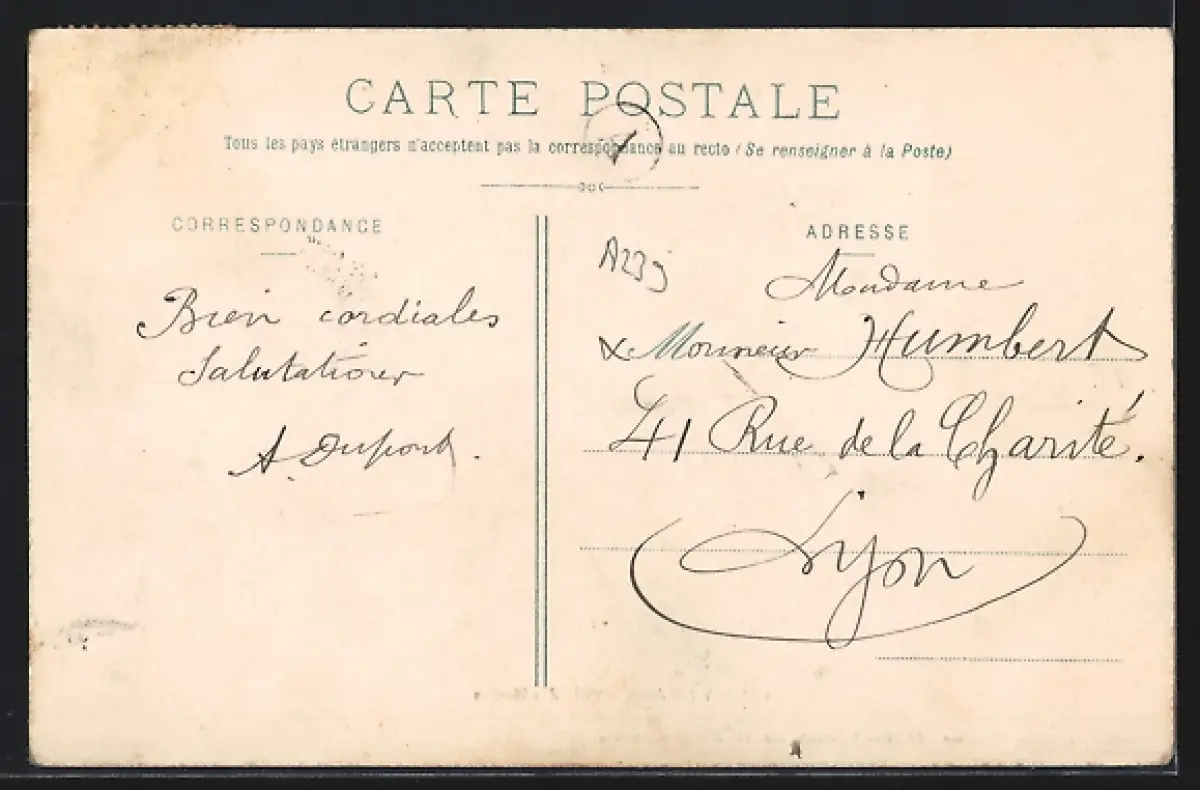 CARTE POSTALE
Tous les pays étrangers n'acceptent pas la correspondance au recto (Se renseigner à la Poste)
CORRESPONDANCE
Bien cordiales
Salutations
A Dupont.
ADRESSE
A239
Madame
& Monsieur Humbert
41 Rue de la Charité.
Lyon